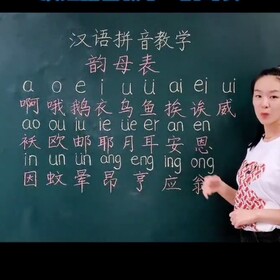 汉语拼音教学
韵母表
a o e i u ü ai ei ui
啊 哦 鹅 衣 乌 鱼 挨 诶 威
ao ou iu ie üe er an en
袄 欧 邮 耶 月 耳 安 恩
in un ün ang eng ing ong
因 蚊 晕 昂 亨 应 翁